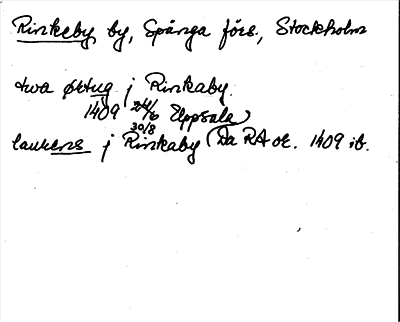 Rinkeby by, Spånga förs., Stockholm
twa øktug j Rinkaby.
1409 24/6 Uppsala
laurens j Rinkaby (Da RA or. 1409 ib.
30/8